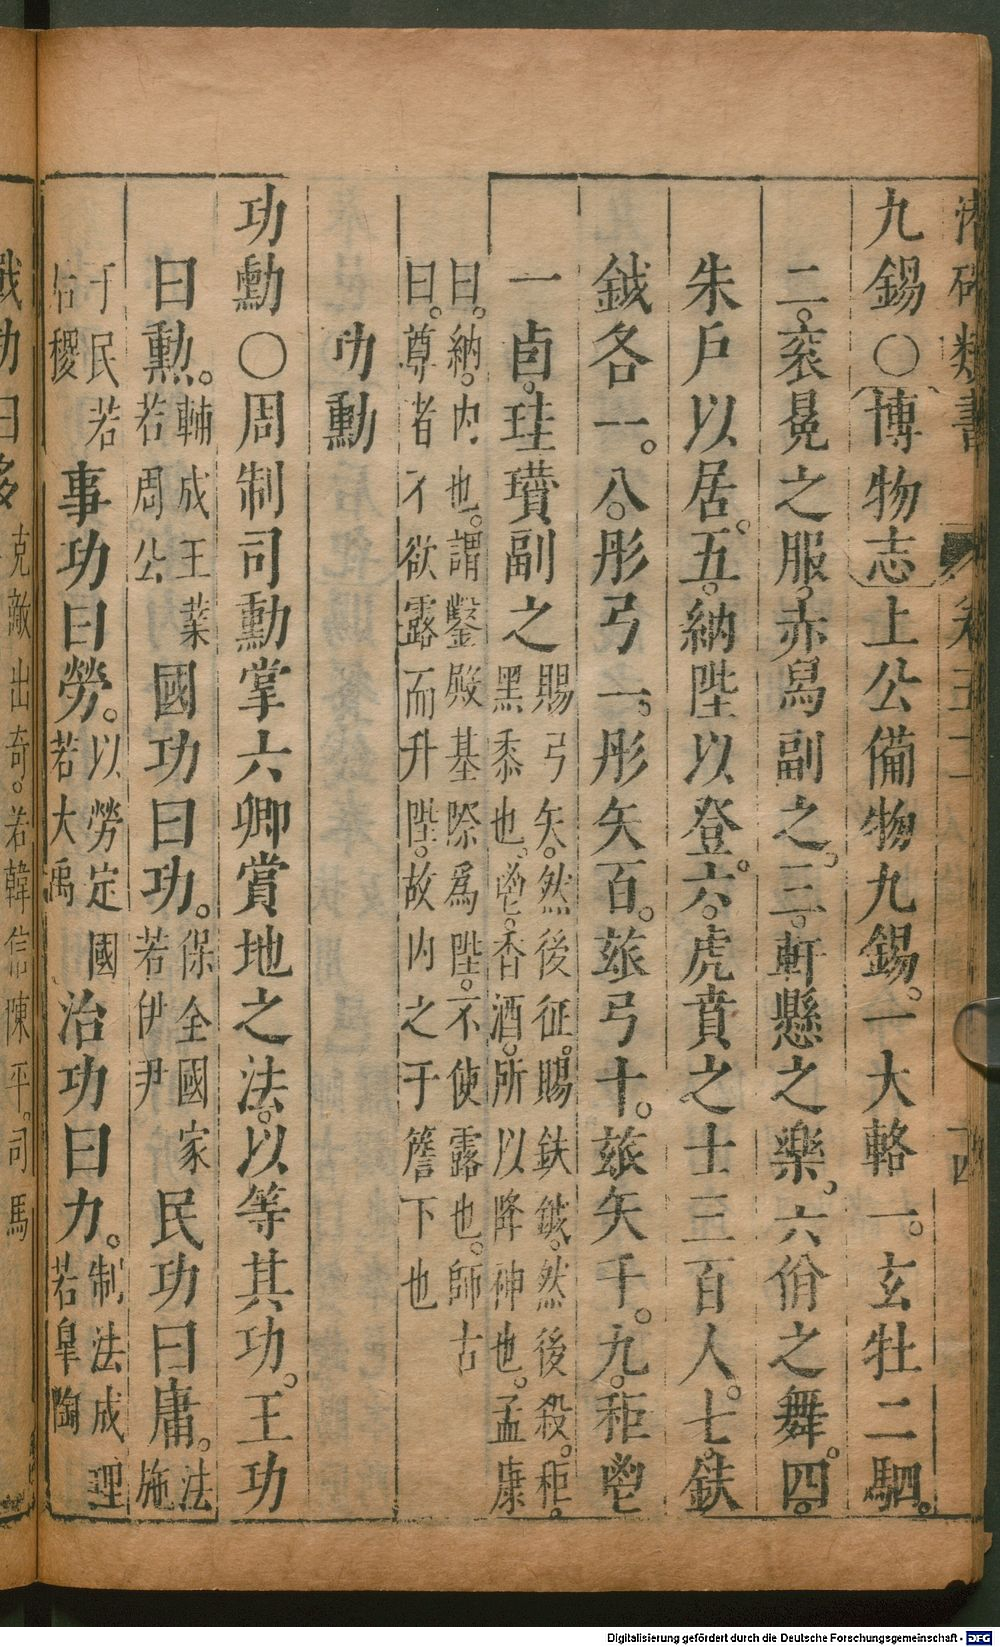 九錫○博物志上公備物九錫。一大輅一。玄牡二駟。
二。衮冕之服。赤舄副之。三。軒懸之樂。六佾之舞。四。
朱戶以居。五。納陛以登。六。虎賁之士三百人。七。鈇
鉞各一。八。彤弓一。彤矢百。玈弓十。玈矢千。九。秬鬯
一卣。珪瓚副之賜弓矢。然後征。賜鈇鉞。然後殺。秬。
黑黍也。鬯。香酒。所以降神也。孟康
曰。納。內也。謂鑿殿基際爲陛。不使露也。師古
曰。尊者不欲露而升陛。故內之于簷下也
功勳
功勳○周制司勳掌六卿賞地之法。以等其功。王功
曰勲。輔成王業
若周公
國功曰功。保全國家
若伊尹
民功曰庸。法
施
于民若
后稷
事功曰勞。以勞定國
若大禹
治功曰力。制法成理
若臯陶
戰功曰多克敵出奇。若韓信陳平。司馬
類書
卷三十
十四
Digitalisierung gefördert durch die Deutsche Forschungsgemeinschaft - DFG